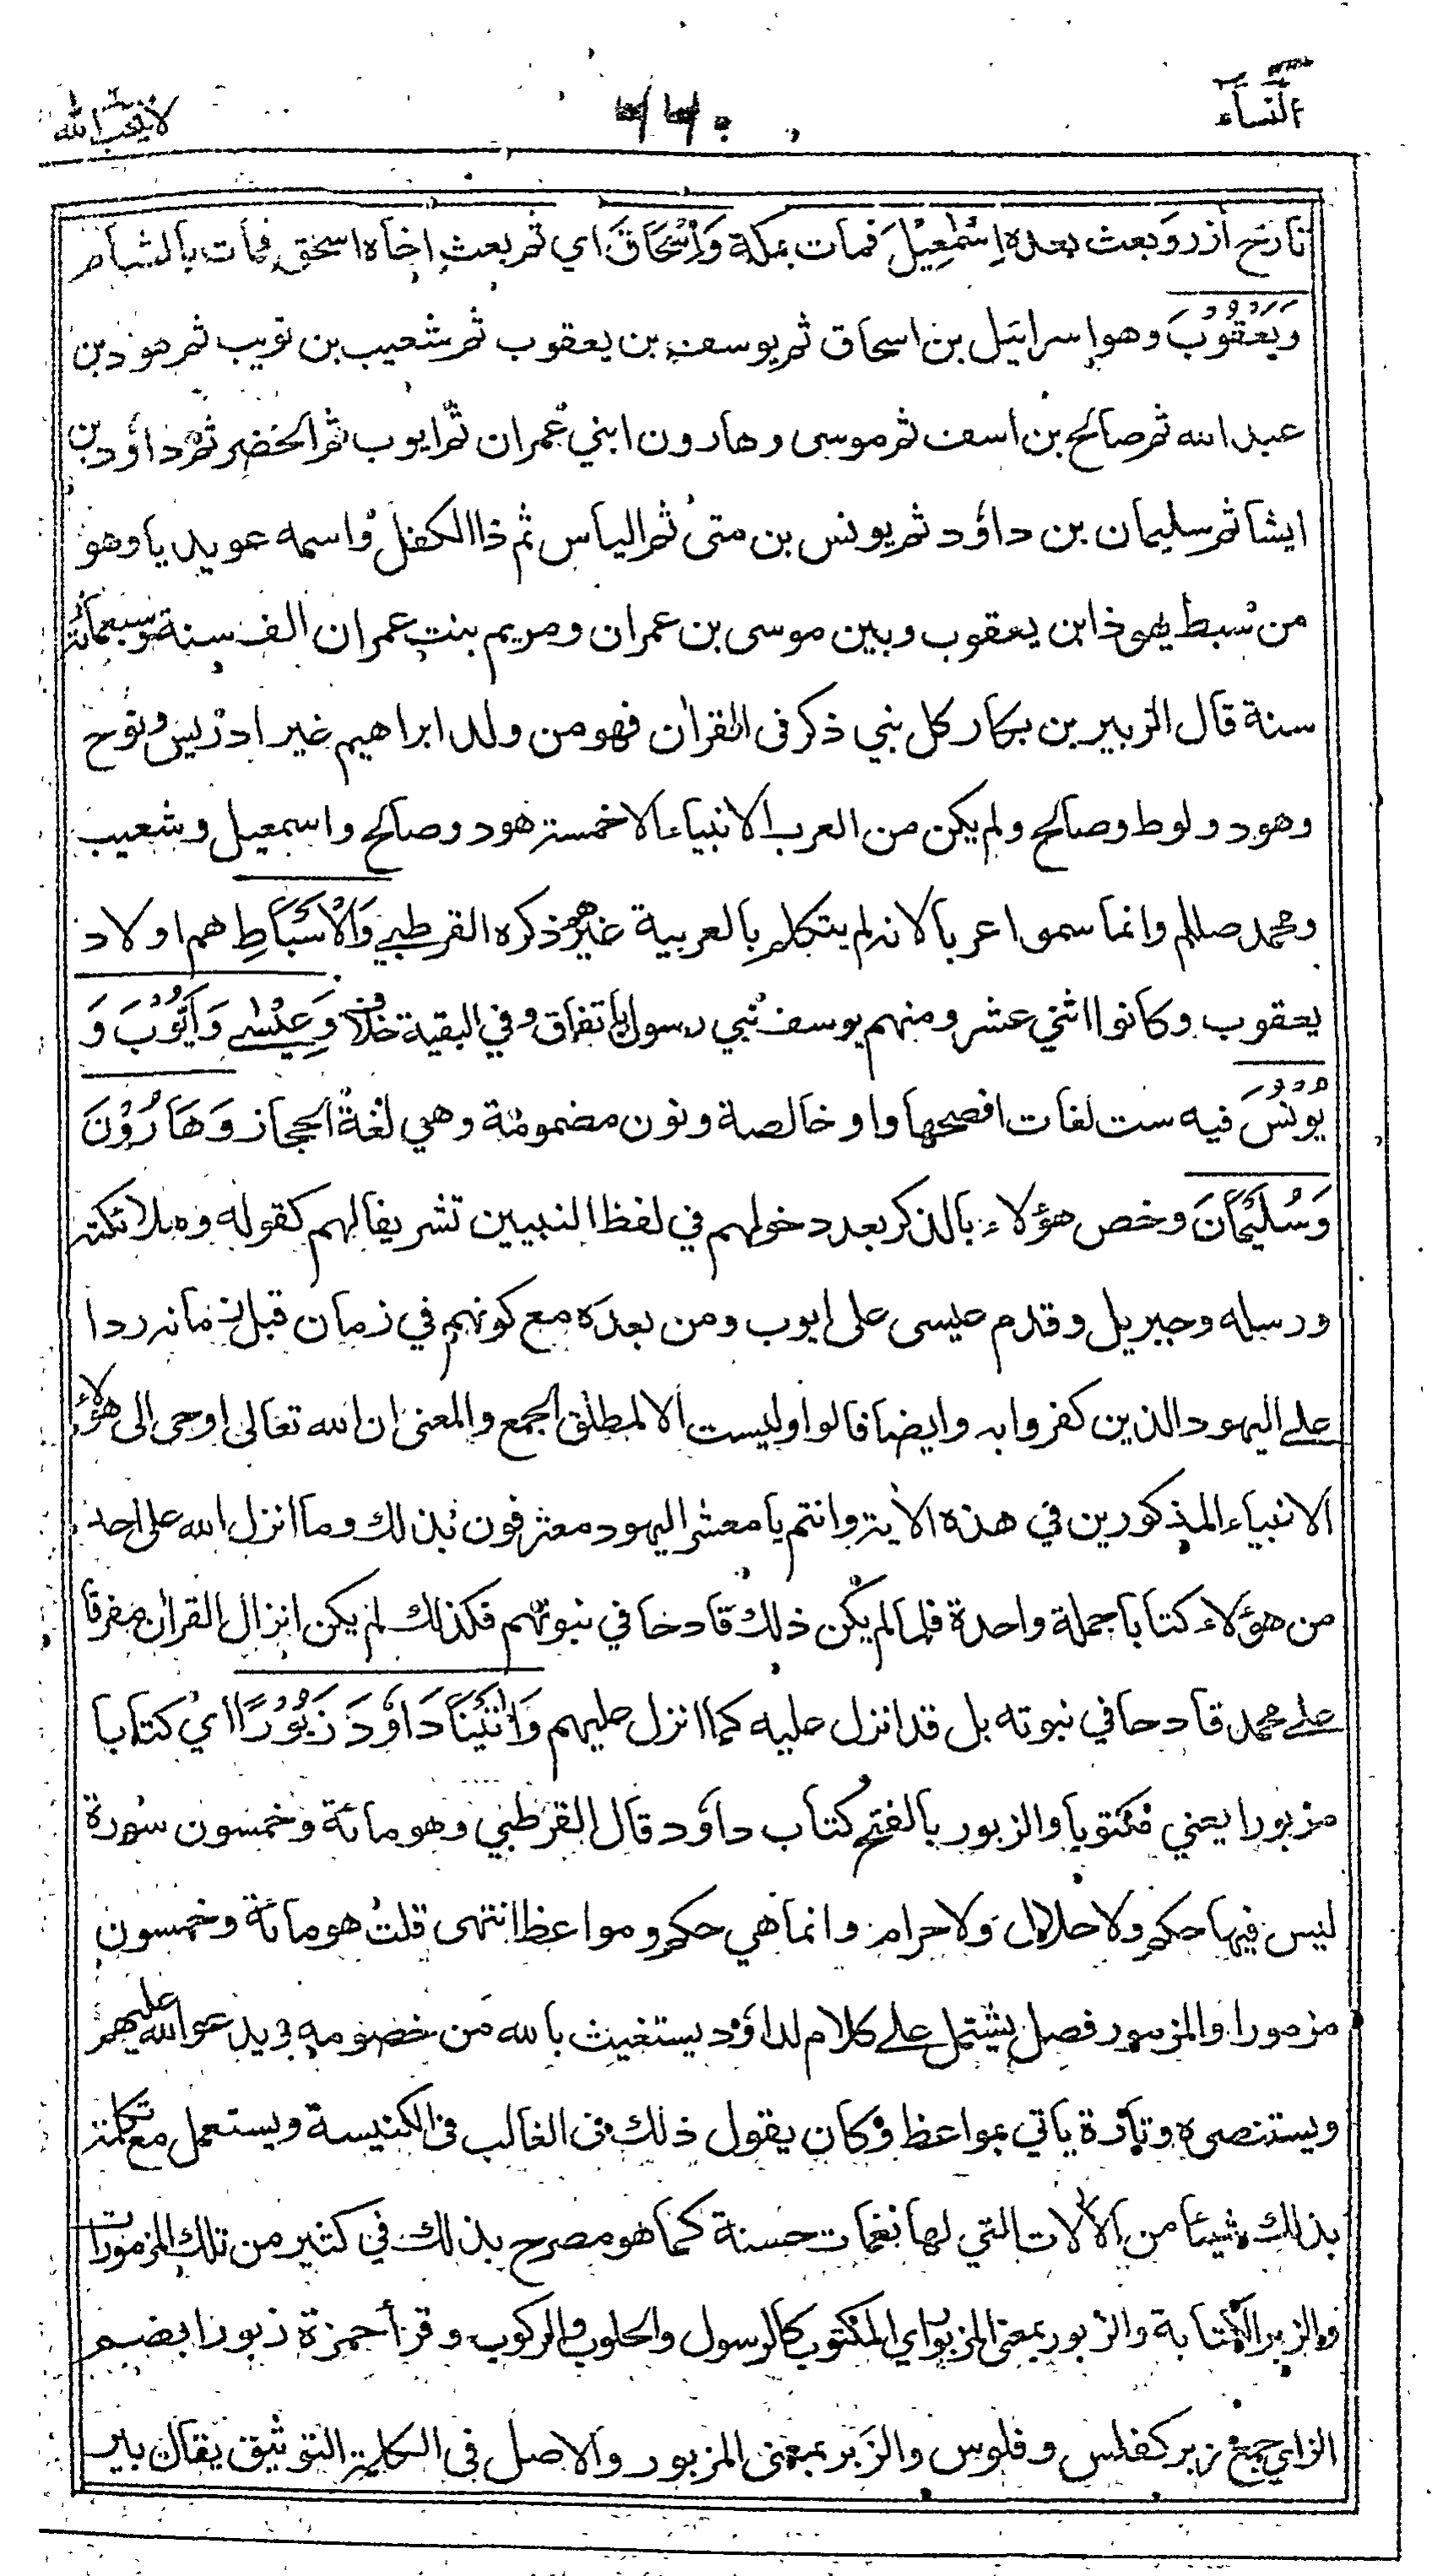 النساء
٦٦٠
لا يحب الله
تارخ أزر وبعث بعده إِسْمٰعِيْلَ فمات بمكة وَإِسْحَاقَ اي ثم بعث اخاه اسحق فمات بالشام
وَيَعْقُوْبَ وهو إسرائيل بن اسحاق ثم يوسف بن يعقوب ثم شعيب بن نويب ثم هود بن
عبد الله ثم صالح بن اسف ثم موسى وهارون ابني عمران ثم ايوب ثم الخضر ثم داؤد بن
ايشا ثم سليمان بن داؤد ثم يونس بن متى ثم الياس ثم ذا الكفل واسمه عويديا وهو
من سبط يهوذا بن يعقوب وبين موسى بن عمران ومريم بنت عمران الف سنة وسبعمائة
سنة قال الزبير بن بكار كل نبي ذكر فى القرأن فهو من ولد ابراهيم غير ادريس ونوح
وهود ولوط وصالح ولم يكن من العرب الانبياء الا خمسة هود وصالح واسمعيل وشعيب
ومحمد صللم وانما سموا عربا لانه لم يتكلم بالعربية غيرهم ذكره القرطبي وَالْأَسْبَاطِ هم اولاد
يعقوب وكانوا اثنى عشر ومنهم يوسف نبي رسول باتفاق وفي البقية خلاف وَعِيْسٰى وَأَيُّوْبَ وَ
يُوْنُسَ فيه ست لغات افصحها واو خالصة ونون مضمومة وهي لغة الحجاز وَهَارُوْنَ
وَسُلَيْمَانَ وخص هؤلاء بالذكر بعد دخولهم في لفظ النبيين تشريفا لهم كقوله وملائكته
ورسله وجبريل وقدم عيسى على ايوب ومن بعده مع كونهم في زمان قبل زمانه ردا
على اليهود الذين كفروا به وايضا فالواو ليست الا لمطلق الجمع والمعنى ان الله تعالى اوحى الى هؤلاء
الانبياء المذكورين في هذه الأية وانتم يا معشر اليهود معترفون بذلك وما انزل الله على احد
من هؤلاء كتابا جملة واحدة فلما لم يكن ذلك قادحا في نبوتهم فكذلك لم يكن انزال القرأن مفرقا
على محمد قادحا في نبوته بل قد انزل عليه كما انزل عليهم وَاٰتَيْنَا دَاوٗدَ زَبُوْرًا اي كتابا
مزبورا يعني مكتوبا والزبور بالفتح كتاب داؤد قال القرطبي وهو مائة وخمسون سورة
ليس فيها حكم ولا حلال ولا حرام وانما هي حكم ومواعظ انتهى قلت هو مائة وخمسون
مزمورا والمزمور فصل يشتمل على كلام لداؤد يستغيث بالله من خصومه ويدعو الله عليهم
ويستنصره وتارة ياتي بمواعظ وكان يقول ذلك فى الغالب فى الكنيسة ويستعمل مع تكلمه
بذلك شيئا من الألات التي لها نغمات حسنة كما هو مصرح بذلك في كثير من تلك المزمورات
والزبر الكتابة والزبور بمعنى المزبور اي المكتوب كالرسول والحلوب والركوب وقرأ حمزة زبورا بضم
الزاي جمع زبر كفلس وفلوس والزبر بمعنى المزبور والاصل فى الكلمة التوثيق يقال بير